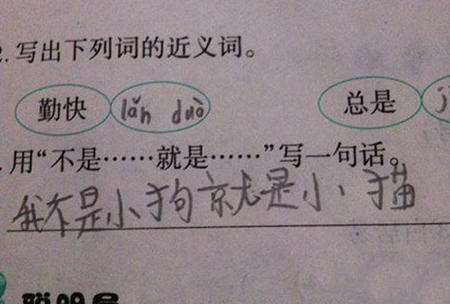 2.写出下列词的近义词。
勤快 lǎn duò 总是 j
.用“不是……就是……”写一句话。
我不是小狗就是小猫
聪明屋